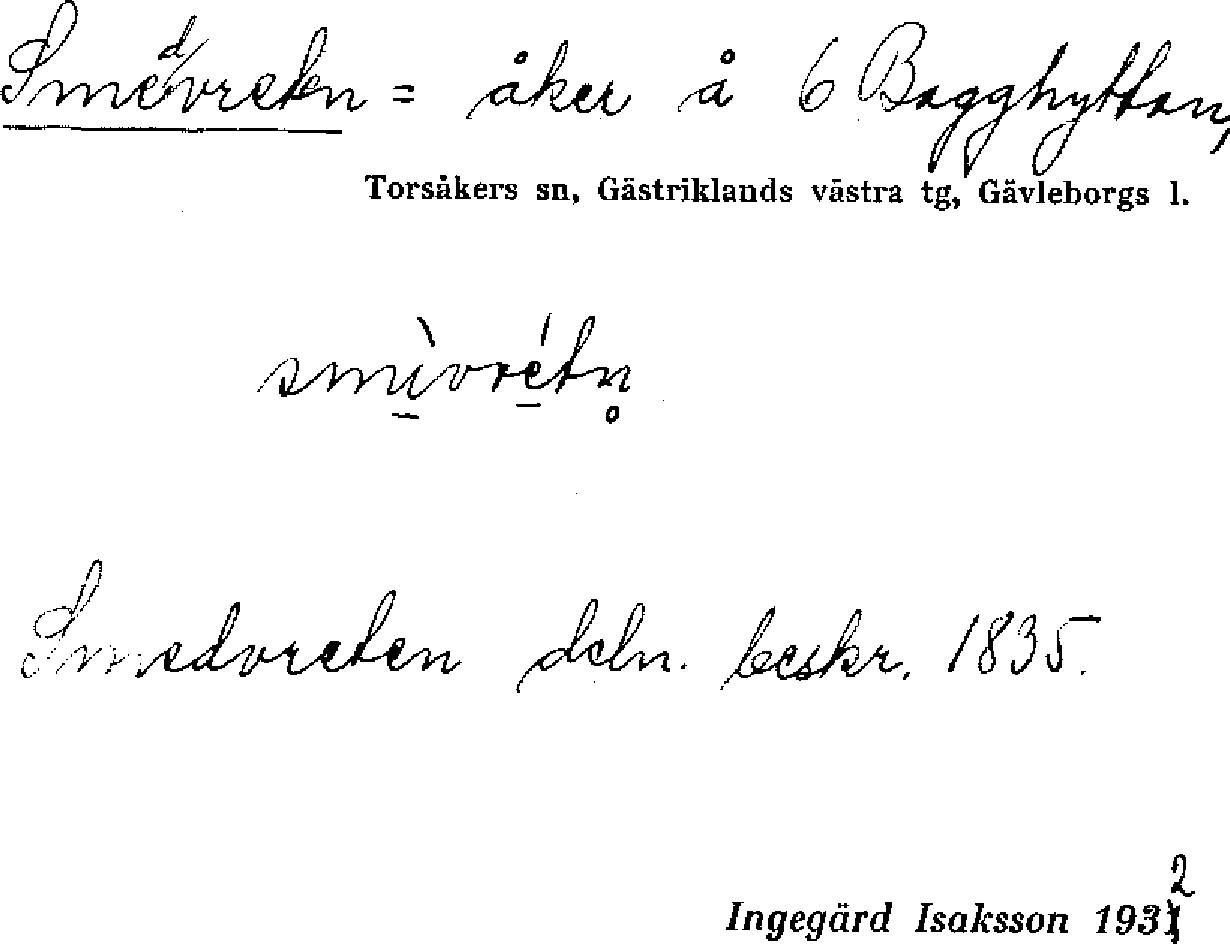 Smedvretn = åker å 6 Bagghyttan,
Torsåkers sn, Gästriklands västra tg, Gävleborgs l.
smì̱vré̱tn̥
Smedvreten deln. beskr. 1835.
Ingegärd Isaksson 1932